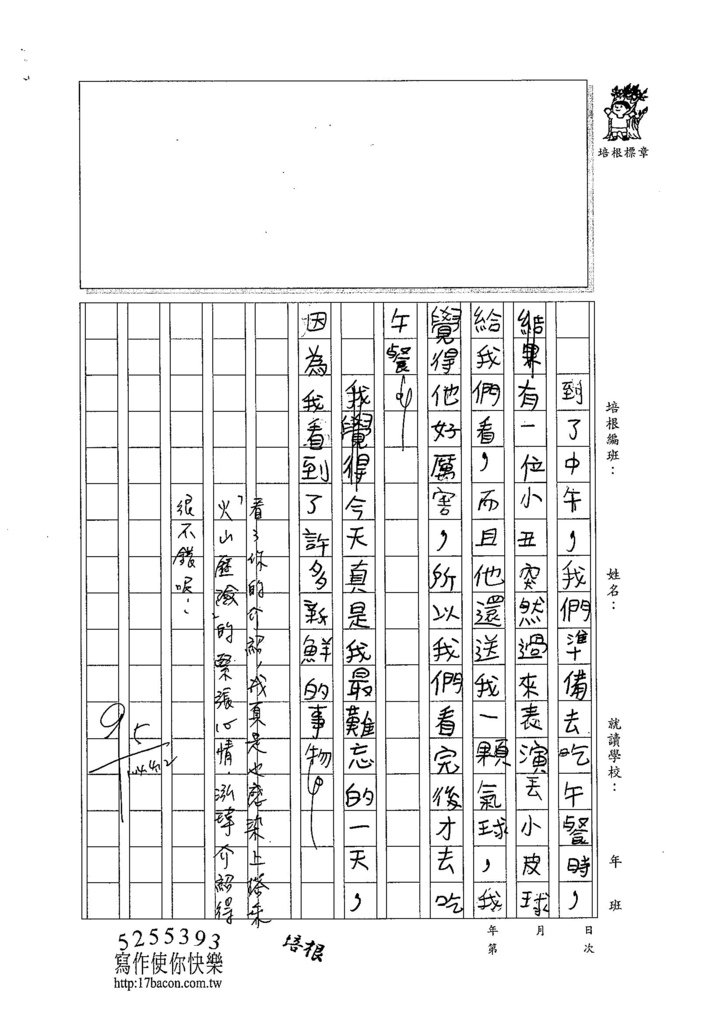 培根標章
培根編班：
姓名：
就讀學校：
年
班
到了中午，我們準備去吃午餐時，
結果有一位小丑突然過來表演丟小皮球
給我們看，而且他還送我一顆氣球，我
覺得他好厲害，所以我們看完後才去吃
午餐。
我覺得今天真是我最難忘的一天，
因為我看到了許多新鮮的事物。
看了你的介紹，我真是也感染上搭乘
"火山歷險"的緊張心情，泓瑋介紹得
很不錯呢！
95
104.4.12
年 月 日
第 次
5255393
培根
寫作使你快樂
http:17bacon.com.tw